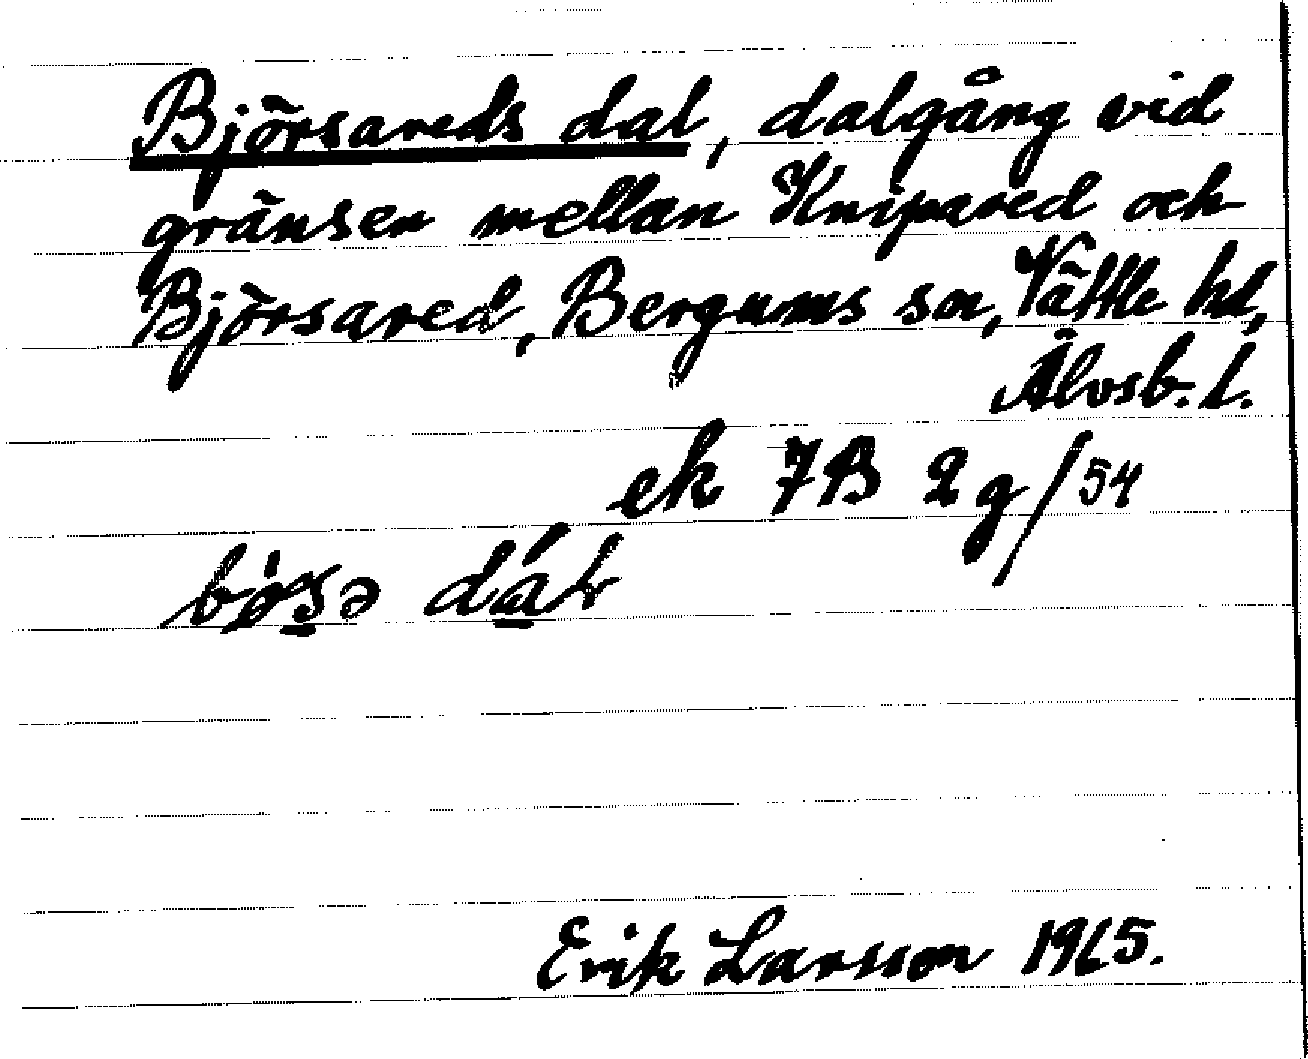 Björsareds dal, dalgång vid
gränsen mellan Knipared och
Björsared, Bergums sn, Vättle hd,
Älvsb. l.
ek 7B 2g/54
Erik Larsson 1965.